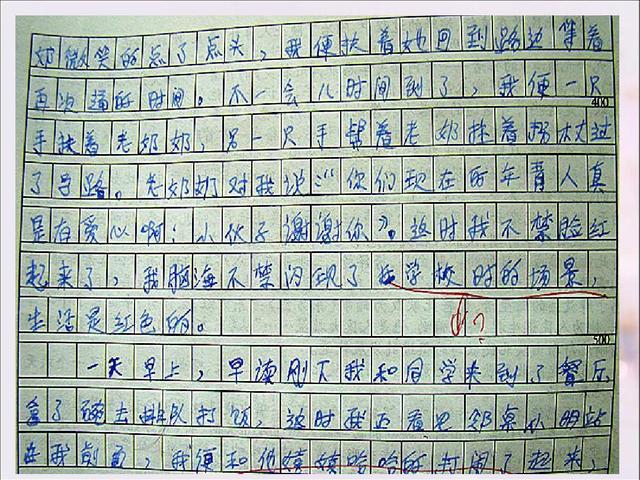 奶微笑的点了点头，我便扶着她回到路边等着
再次通的时间。不一会儿时间到了，我便一只
400
手扶着老奶奶，另一只手帮着老奶拄着拐杖过
了马路。老奶奶对我说：“你们现在的年青人真
是有爱心啊！小伙子谢谢你”。这时我不禁脸红
起来了，我脑海不禁闪现了在学校时的场景，
生活是红色的。
？
500
一天早上，早读刚下我和同学来到了餐厅，
拿了碗去排队打饭，这时我正看见邻桌小明站
在我前面，我便和他嘻嘻哈哈的打闹了起来，